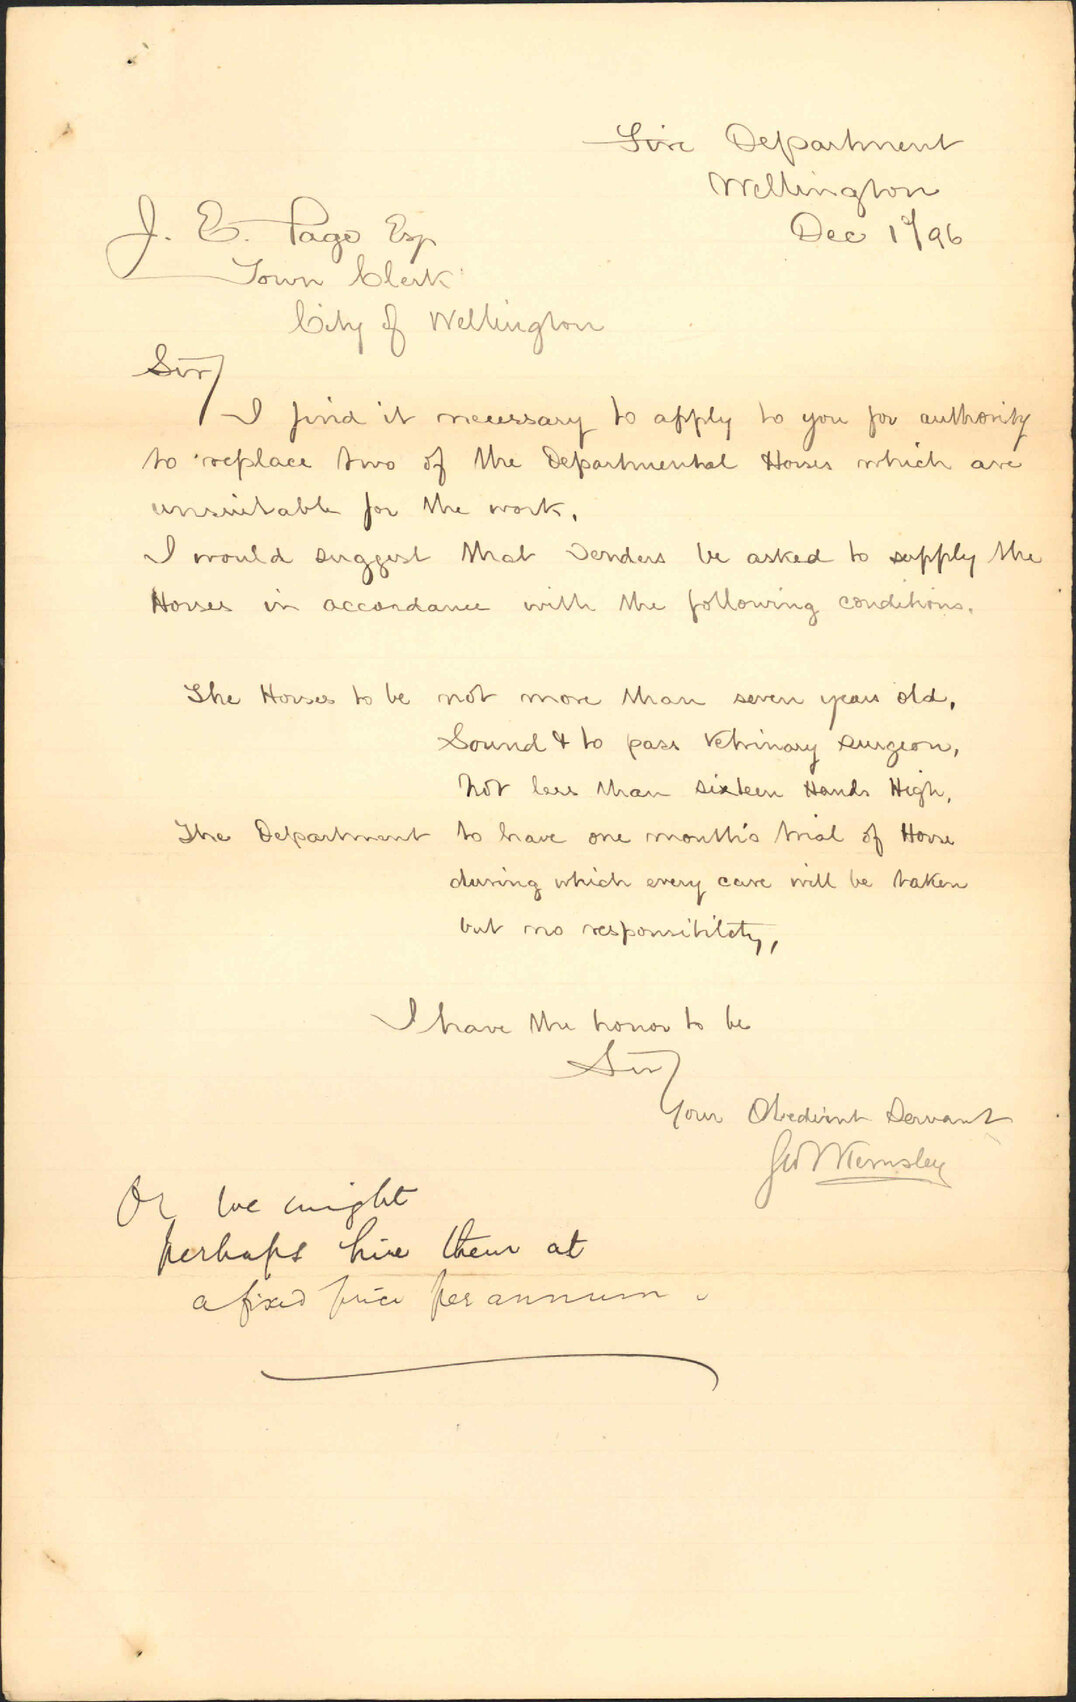 Fire Department
Wellington
Dec 1st/96
J. E. Page Esq
Town Clerk
City of Wellington
Sir/
I find it necessary to apply to you for authority
to replace two of the Departmental Horses which are
unsuitable for the work.
I would suggest that Tenders be asked to supply the
Horses in accordance with the following conditions.
The Horses to be not more than seven years old.
Sound & to pass Vetrinary Surgeon.
Not less than sixteen Hands High.
The Department to have one month's trial of Horse
during which every care will be taken
but no responsibility,
I have the honor to be
Sir/
Your Obedient Servant
Or we might
perhaps hire them at
a fixed price per annum.